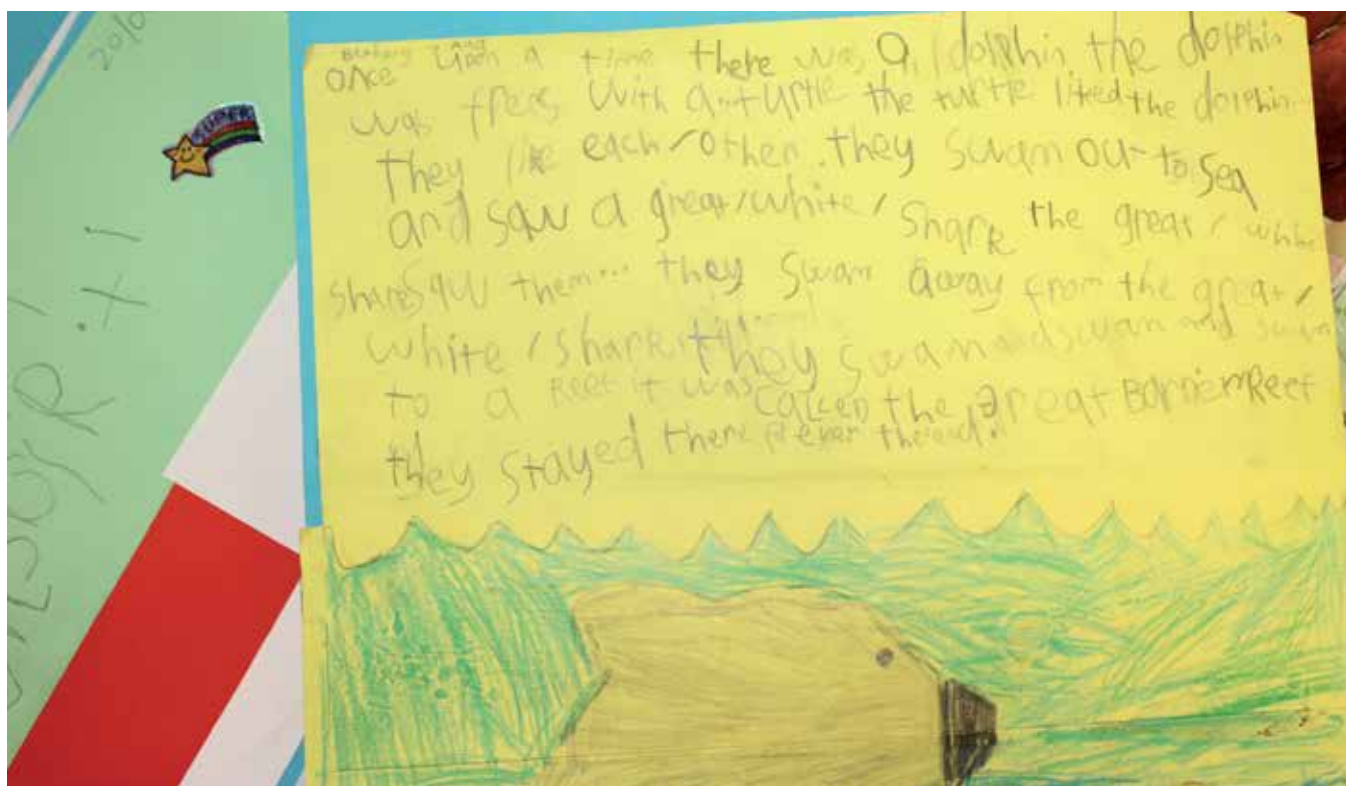 once upon a time there was a dolphin the dolphin
was freds with a turtle the turtle liked the dolphin
they like each/other. they swam out to sea
and saw a great/white/shark the great/white
shark saw them... they swam away from the great/
white/shark they swam and swam and swam
to a Reef it was called the great Barrier Reef
they stayed there for ever the end.
SUPER